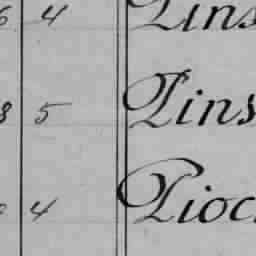 6 4 Lins
8 5 Lins
4 Lioc